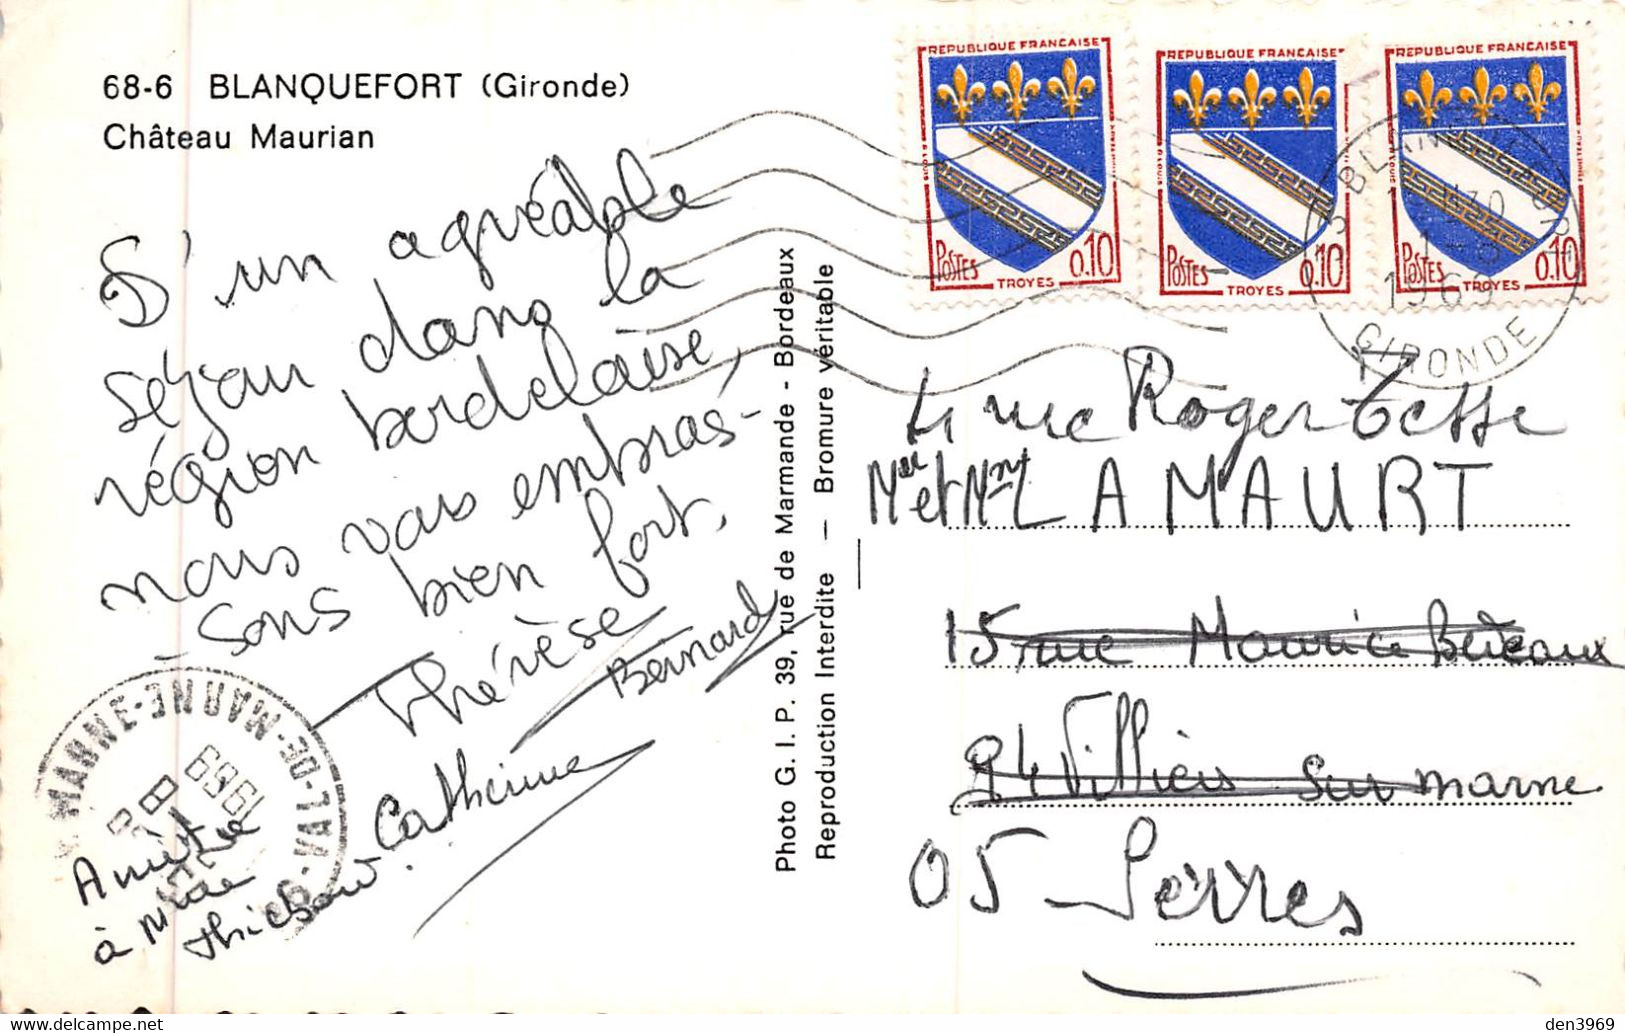 68-6 BLANQUEFORT (Gironde)
Château Maurian
D'un agréable
séjour dans la
région bordelaise,
nous vous embras-
-sons bien fort.
Thérèse
Bernard
Catherine
Amitié
à Mme
Photo G. I. P. 39, rue de Marmande - Bordeaux
Reproduction Interdite — Bromure véritable
REPUBLIQUE FRANCAISE
POSTES
0,10
TROYES
REPUBLIQUE FRANCAISE
POSTES
0,10
TROYES
REPUBLIQUE FRANCAISE
POSTES
0,10
TROYES
BLANQUEFORT
1969
GIRONDE
rue Roger
Mr et Mme LAMAURT
15, rue Maurice
94 Villiers sur marne
05 - Serres
MARNE - VAL-DE-MARNE
1969
den3969